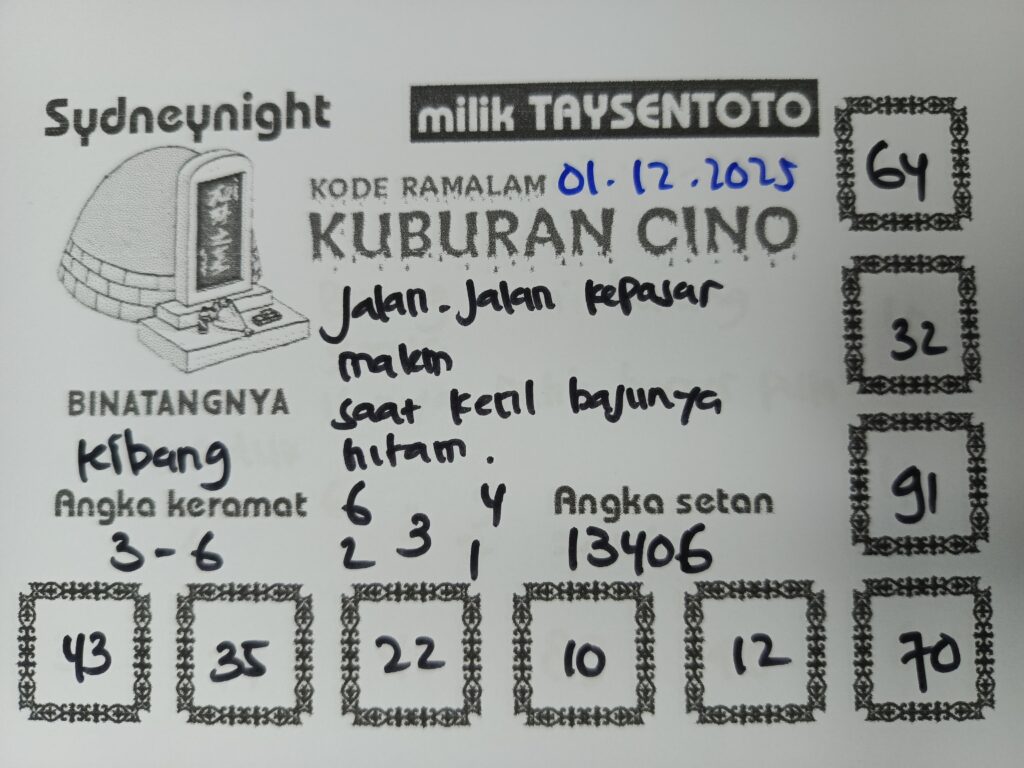 Sydneynight
milik TAYSENTOTO
KODE RAMALAM 01.12.2025
KUBURAN CINO
Jalan-Jalan kepasar
makin
saat kecil bajunya
hitam.
BINATANGNYA
kibang
Angka keramat
3-6
6 4
3
2 1
Angka setan
13406
64
32
91
43
35
22
10
12
70